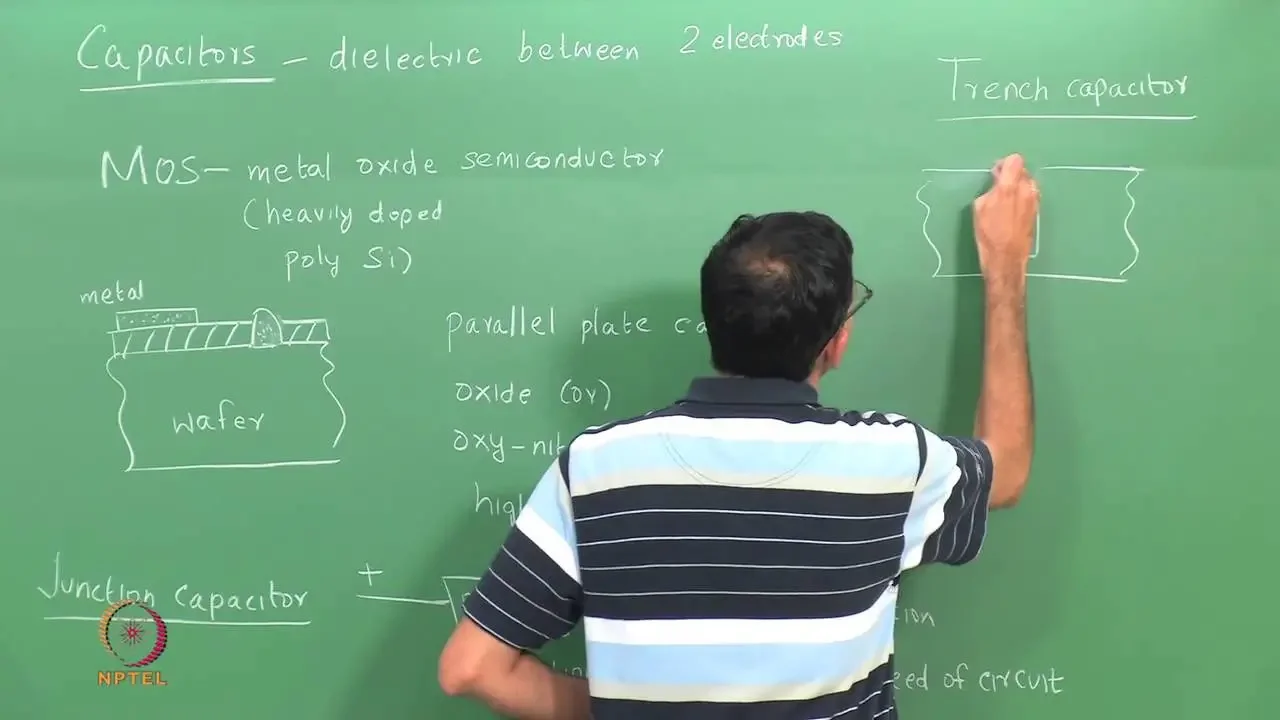 Capacitors - dielectric between 2 electrodes
Trench capacitor
MOS - metal oxide semiconductor
(heavily doped
poly Si)
metal
wafer
parallel plate
oxide (or)
Junction Capacitor
+
of circuit
NPTEL